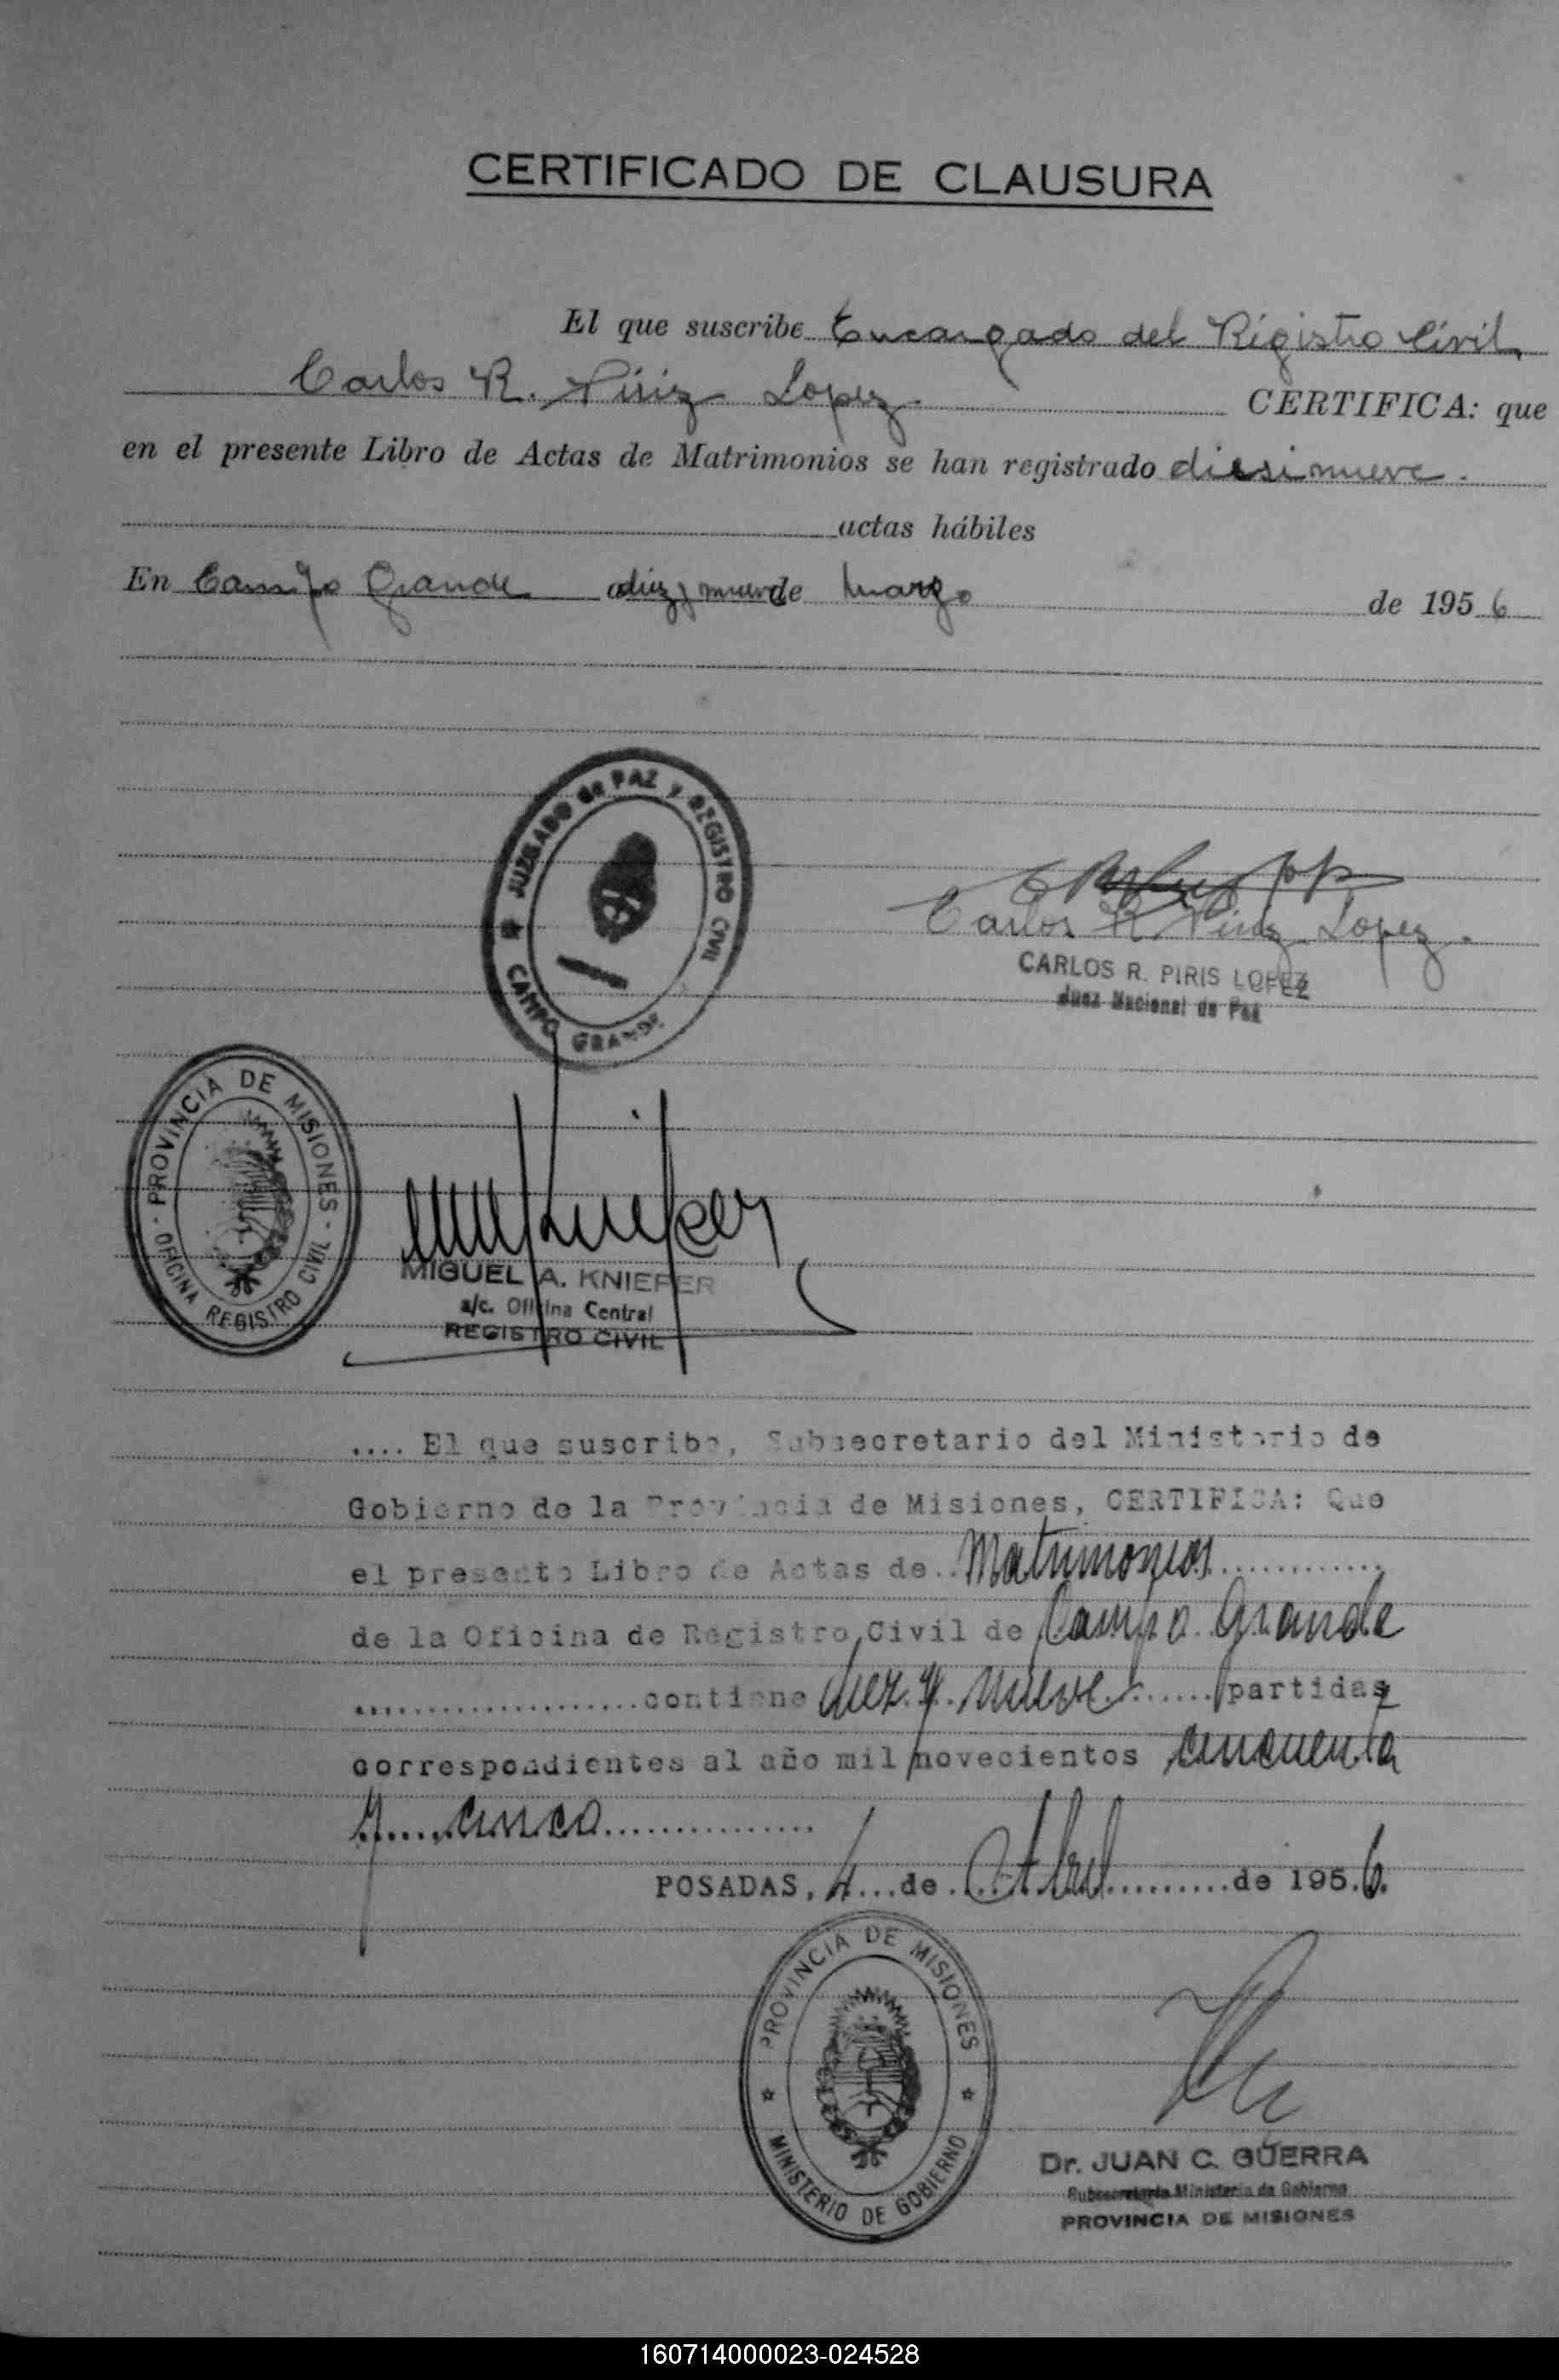 CERTIFICADO DE CLAUSURA
El que suscribe Encargado del Registro Civil,
Carlos R. Piriz Lopez. CERTIFICA: que
en el presente Libro de Actas de Matrimonios se han registrado diesinueve.
actas hábiles
En Campo Grande diez y nueve de Marzo de 1956
JUZGADO de PAZ y REGISTRO CIVIL
CAMPO GRANDE
Carlos R Piriz Lopez.
CARLOS R. PIRIS LOPEZ
Juez Nacional de Paz
PROVINCIA DE MISIONES
OFICINA REGISTRO CIVIL
MIGUEL A. KNIEFER
a/c. Oficina Central
REGISTRO CIVIL
.... El que suscribe, Subsecretario del Ministerio de
Gobierno de la Provincia de Misiones, CERTIFICA: Que
el presente Libro de Actas de..Matrimonios............
de la Oficina de Registro Civil de Campo Grande
....................contiene diez y nueve.......partidas
correspondientes al año mil novecientos cincuenta
y.....cinco...............
POSADAS, 4...de.....Abril..........de 195.6.
PROVINCIA DE MISIONES
MINISTERIO DE GOBIERNO
Dr. JUAN C. GUERRA
Subsecretario Ministerio de Gobierno
PROVINCIA DE MISIONES
160714000023-024528